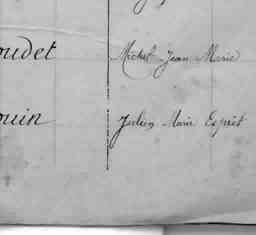 oudet Michel Jean Marie
ouin Julien Marie Esprit